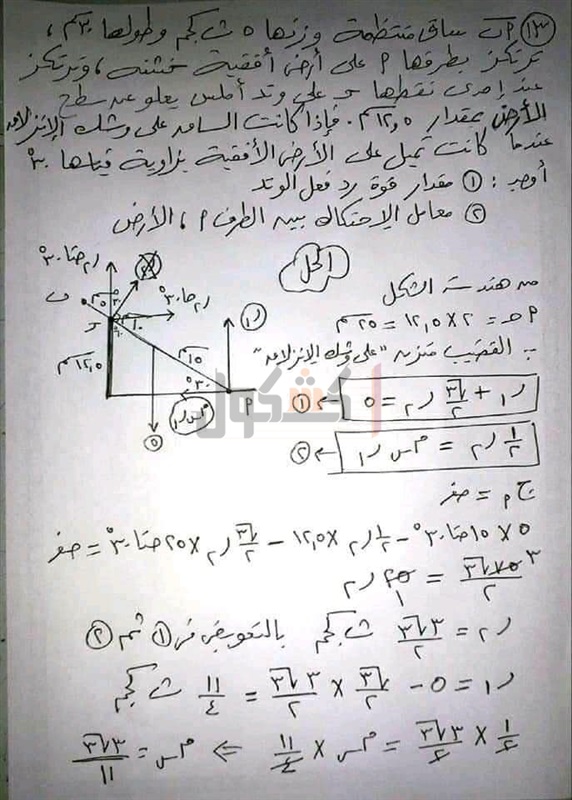 ١٣) م ب ساق منتظمة وزنها ٥ ث كجم وطولها ٣٠سم،
ترتكز بطرفها م على أرض أفقية خشنة، وترتكز
عند إحدى نقطها حـ على وتد أملس يعلو عن سطح
الأرض بمقدار ١٢,٥سم. فإذا كانت الساق على وشك الإنزلاق
عندما كانت تميل على الأرض الأفقية بزاوية قياسها ٣٠°
أوجد: ① مقدار قوة رد فعل الوتد
② معامل الإحتكاك بين الطرف م، الأرض
الحل
ر٢ حتا٣٠°
ر٢ حا٣٠°
ب
حـ
ر١
١٢,٥سم
١٥سم
٣٠°
م
م س ر١
٥
من هندسة الشكل
م حـ = ٢ × ١٢,٥ = ٢٥سم
∵ القضيب متزن "على وشك الإنزلاق"
ر١ + √٣/٢ ر٢ = ٥ ← ①
١/٢ ر٢ = م س ر١ ← ②
ج م = صفر
٥ × ١٥ حتا٣٠° - ١/٢ ر٢ × ١٢,٥ - √٣/٢ ر٢ × ٢٥ حتا٣٠° = صفر
٧٥√٣/٢ = ٢٥/١ ر٢
ر٢ = ٣√٣/٢ ث كجم بالتعويض فى ① ثم ②
ر١ = ٥ - √٣/٢ × ٣√٣/٢ = ١١/٤ ث كجم
١/٢ × ٣√٣/٢ = م س × ١١/٤ ⇐ م س = ٣√٣/١١
كشكول